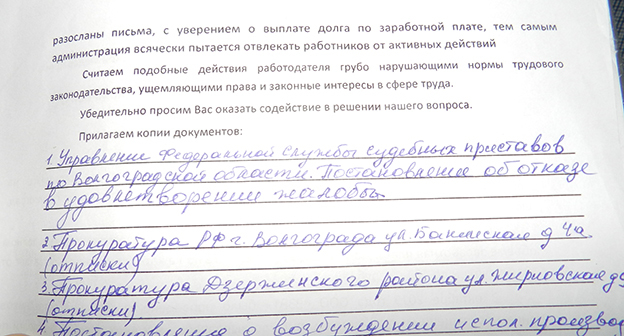 разосланы письма, с уверением о выплате долга по заработной плате, тем самым
администрация всячески пытается отвлекать работников от активных действий
Считаем подобные действия работодателя грубо нарушающими нормы трудового
законодательства, ущемляющими права и законные интересы в сфере труда.
Убедительно просим Вас оказать содействие в решении нашего вопроса.
Прилагаем копии документов:
1. Управление Федеральной Службы судебных приставов
по Волгоградской области. Постановление об отказе
в удовлетворении жалобы
2. Прокуратура РФ г. Волгограда ул. д 4а
(отписки)
3. Прокуратура Дзержинского района ул. Жирновская д 9
(отписки)
4. Постановление о возбуждении испол. производ